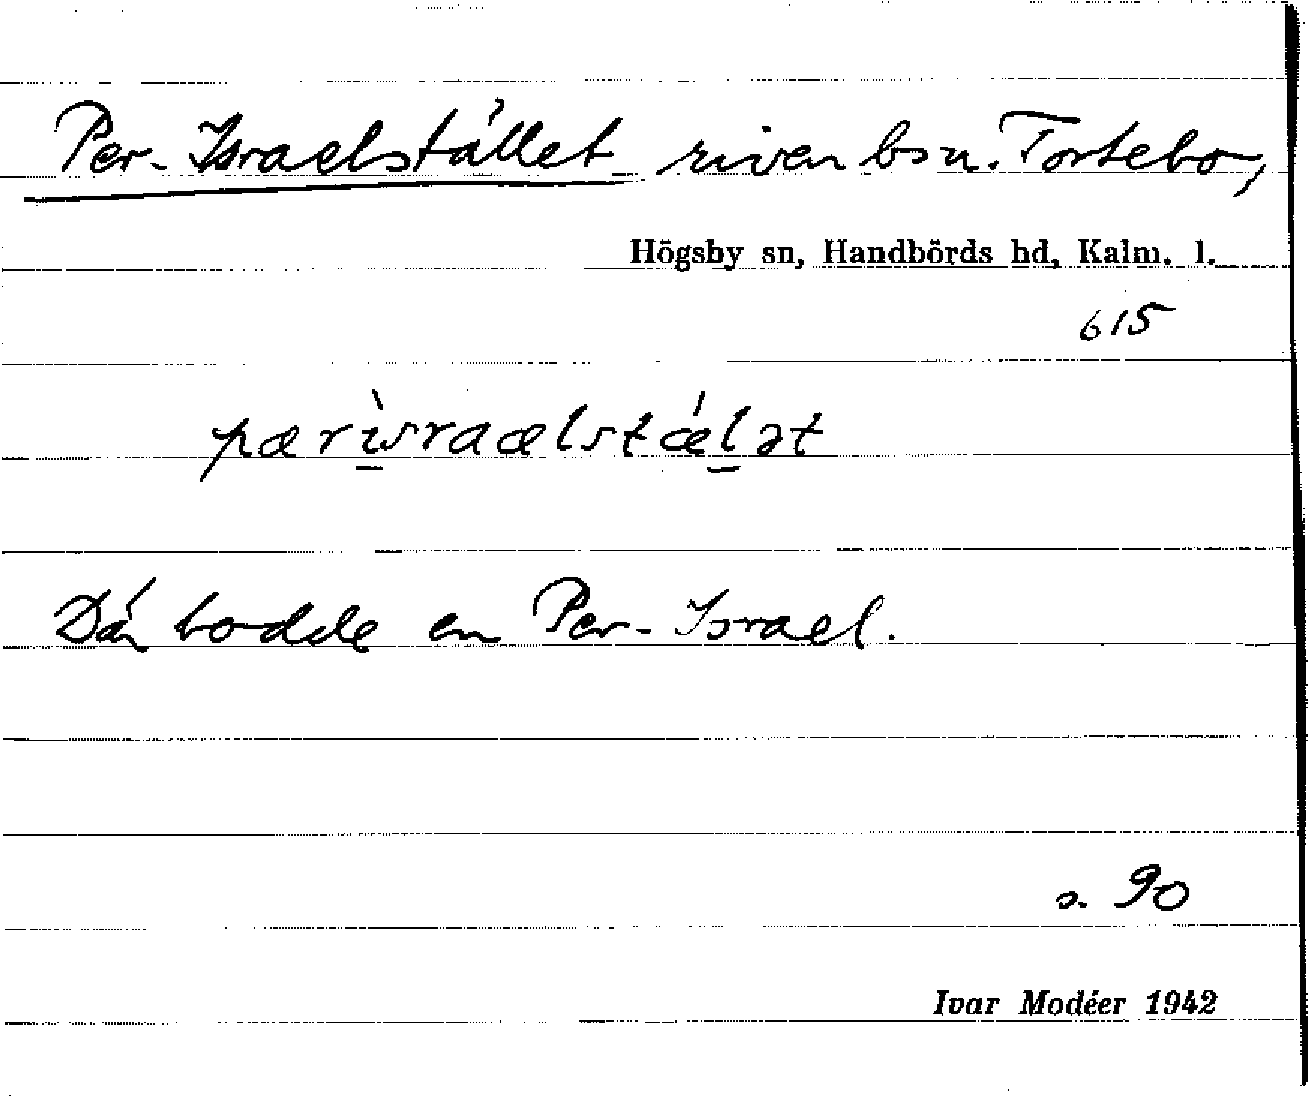 Per-Israelstället riven bsn. Tortebo,
Högsby sn, Handbörds hd, Kalm. l.
615
pærìsraælstǽl̲ət
Där bodde en Per-Israel.
s. 90
Ivar Modéer 1942